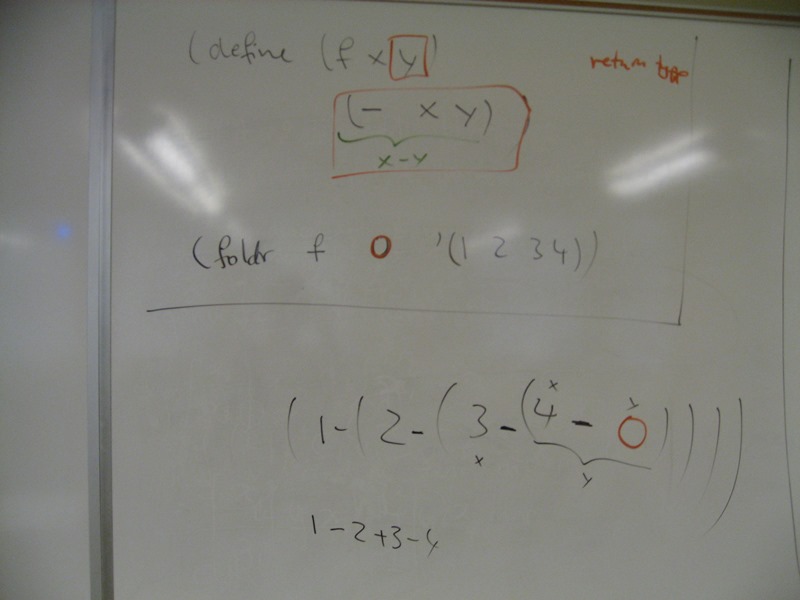 (define (f x y)
return type
(- x y)
x-y
(foldr f 0 '(1 2 3 4))
(1-(2-(3-(4-0))))
x y
x
y
1-2+3-4